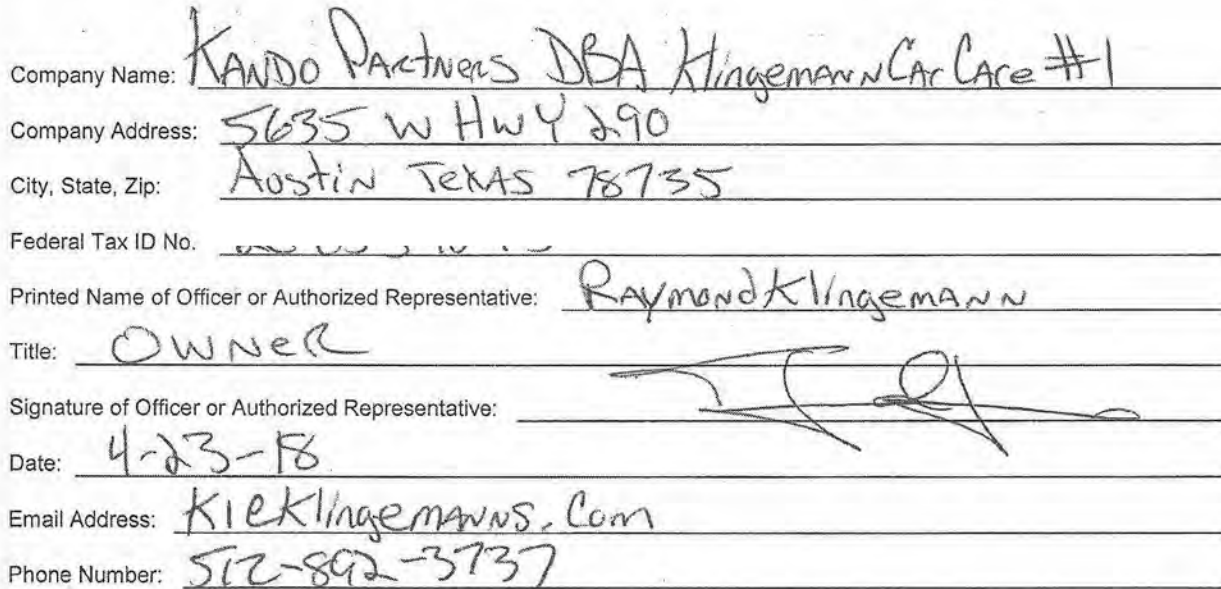 Company Name: KANDO PARTNERS DBA Klingemann Car Care #1
Company Address: 5635 W HWY 290
City, State, Zip: Austin Texas 78735
Federal Tax ID No.
Printed Name of Officer or Authorized Representative: Raymond Klingemann
Title: OWNER
Signature of Officer or Authorized Representative:
Date: 4-23-18
Email Address: K1@Klingemanns.com
Phone Number: 512-892-3737